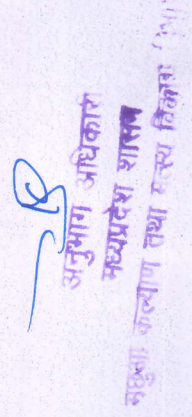 अनुभाग अधिकारी
मध्यप्रदेश शासन
मछुआ कल्याण तथा मत्स्य विकास